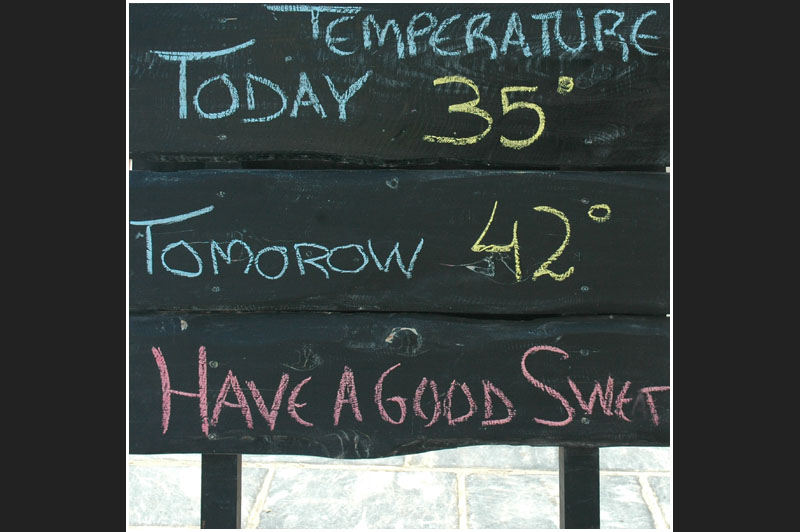 TEMPERATURE
TODAY 35°
TOMOROW 42°
HAVE A GOOD SWET